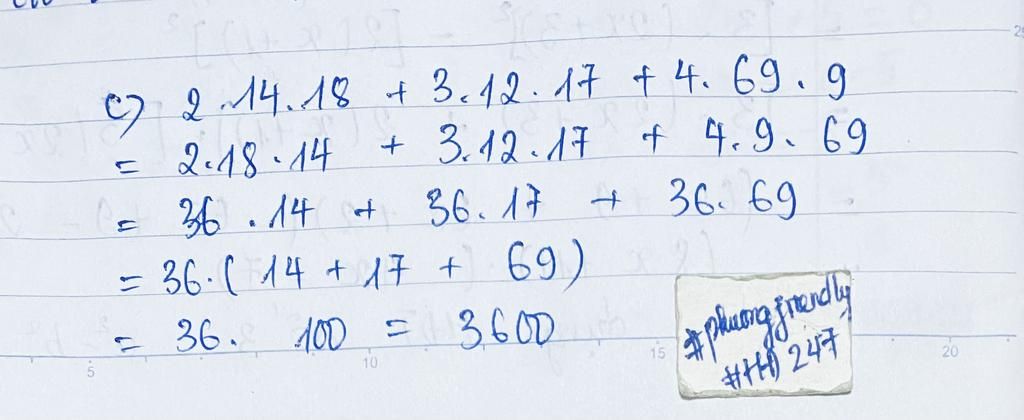 c) 2.14.18 + 3.12.17 + 4.69.9
= 2.18.14 + 3.12.17 + 4.9.69
= 36.14 + 36.17 + 36.69
= 36.(14 + 17 + 69)
= 36. 100 = 3600
#phuongfriendly
#HĐ247
5 10 15 20